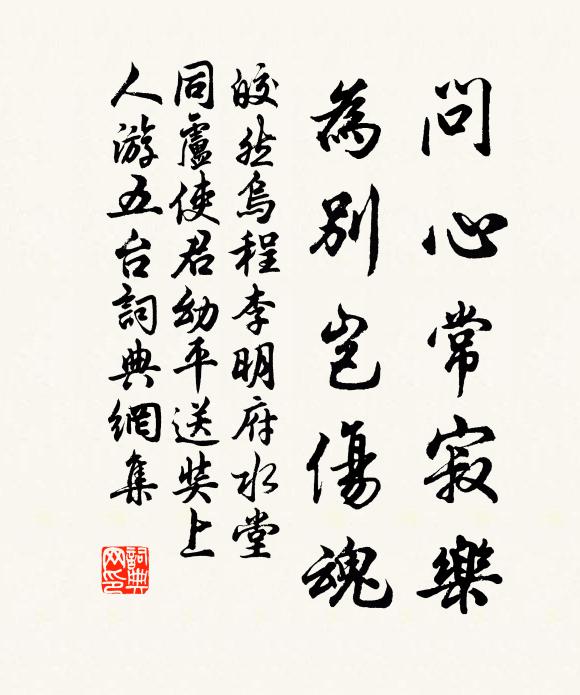 問心常寂樂
為別豈傷魂
皎然烏程李明府水堂
同盧使君幼平送奘上
人游五台詞典網集
詞典
网印